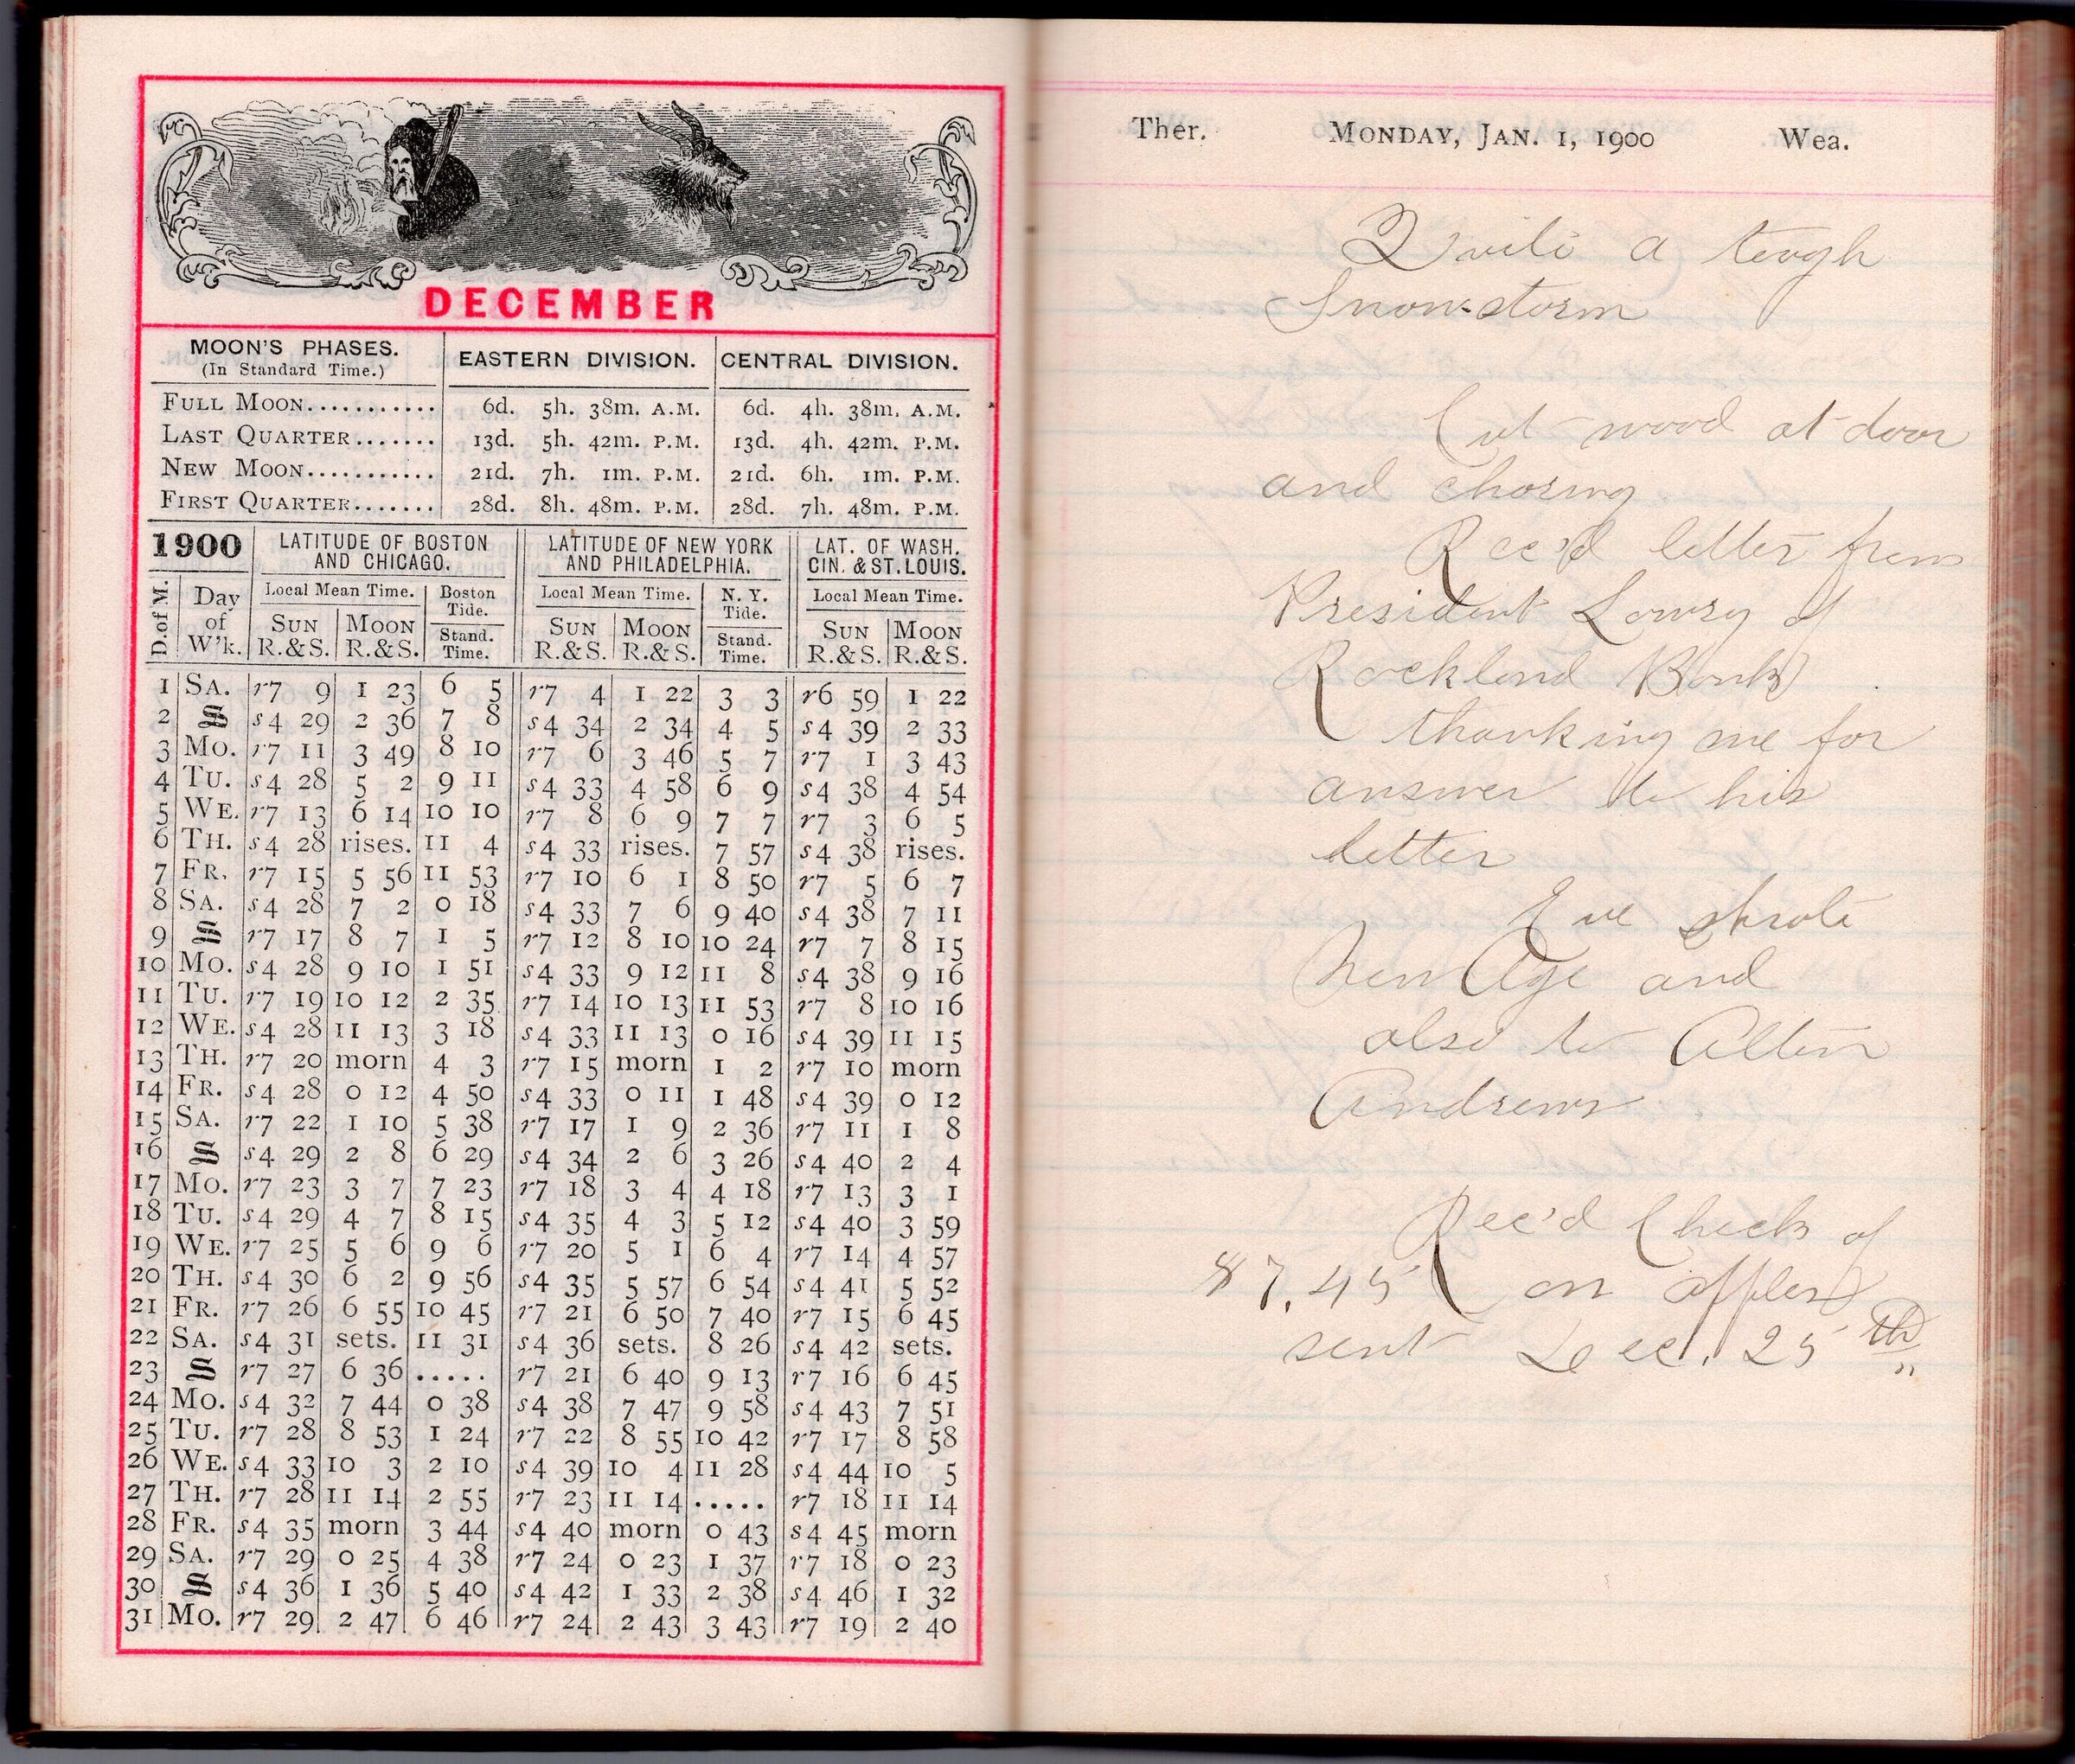 DECEMBER
MOON'S PHASES. (In Standard Time.) EASTERN DIVISION. CENTRAL DIVISION.
FULL MOON........... 6d. 5h. 38m. A.M. 6d. 4h. 38m. A.M.
LAST QUARTER....... 13d. 5h. 42m. P.M. 13d. 4h. 42m. P.M.
NEW MOON........... 21d. 7h. 1m. P.M. 21d. 6h. 1m. P.M.
FIRST QUARTER....... 28d. 8h. 48m. P.M. 28d. 7h. 48m. P.M.
1900 LATITUDE OF BOSTON AND CHICAGO. LATITUDE OF NEW YORK AND PHILADELPHIA. LAT. OF WASH. CIN. & ST. LOUIS.
D. of M. Day of W'k. Local Mean Time. Boston Tide. Local Mean Time. N. Y. Tide. Local Mean Time.
SUN R.&S. MOON R.&S. Stand. Time. SUN R.&S. MOON R.&S. Stand. Time. SUN R.&S. MOON R.&S.
1 SA. r7 9 1 23 6 5 r7 4 1 22 3 3 r6 59 1 22
2 S s4 29 2 36 7 8 s4 34 2 34 4 5 s4 39 2 33
3 MO. r7 11 3 49 8 10 r7 6 3 46 5 7 r7 1 3 43
4 TU. s4 28 5 2 9 11 s4 33 4 58 6 9 s4 38 4 54
5 WE. r7 13 6 14 10 10 r7 8 6 9 7 7 r7 3 6 5
6 TH. s4 28 rises. 11 4 s4 33 rises. 7 57 s4 38 rises.
7 FR. r7 15 5 56 11 53 r7 10 6 1 8 50 r7 5 6 7
8 SA. s4 28 7 2 0 18 s4 33 7 6 9 40 s4 38 7 11
9 S r7 17 8 7 1 5 r7 12 8 10 10 24 r7 7 8 15
10 MO. s4 28 9 10 1 51 s4 33 9 12 11 8 s4 38 9 16
11 TU. r7 19 10 12 2 35 r7 14 10 13 11 53 r7 8 10 16
12 WE. s4 28 11 13 3 18 s4 33 11 13 0 16 s4 39 11 15
13 TH. r7 20 morn 4 3 r7 15 morn 1 2 r7 10 morn
14 FR. s4 28 0 12 4 50 s4 33 0 11 1 48 s4 39 0 12
15 SA. r7 22 1 10 5 38 r7 17 1 9 2 36 r7 11 1 8
16 S s4 29 2 8 6 29 s4 34 2 6 3 26 s4 40 2 4
17 MO. r7 23 3 7 7 23 r7 18 3 4 4 18 r7 13 3 1
18 TU. s4 29 4 7 8 15 s4 35 4 3 5 12 s4 40 3 59
19 WE. r7 25 5 6 9 6 r7 20 5 1 6 4 r7 14 4 57
20 TH. s4 30 6 2 9 56 s4 35 5 57 6 54 s4 41 5 52
21 FR. r7 26 6 55 10 45 r7 21 6 50 7 40 r7 15 6 45
22 SA. s4 31 sets. 11 31 s4 36 sets. 8 26 s4 42 sets.
23 S r7 27 6 36 ..... r7 21 6 40 9 13 r7 16 6 45
24 MO. s4 32 7 44 0 38 s4 38 7 47 9 58 s4 43 7 51
25 TU. r7 28 8 53 1 24 r7 22 8 55 10 42 r7 17 8 58
26 WE. s4 33 10 3 2 10 s4 39 10 4 11 28 s4 44 10 5
27 TH. r7 28 11 14 2 55 r7 23 11 14 ..... r7 18 11 14
28 FR. s4 35 morn 3 44 s4 40 morn 0 43 s4 45 morn
29 SA. r7 29 0 25 4 38 r7 24 0 23 1 37 r7 18 0 23
30 S s4 36 1 36 5 40 s4 42 1 33 2 38 s4 46 1 32
31 MO. r7 29 2 47 6 46 r7 24 2 43 3 43 r7 19 2 40
Ther. MONDAY, JAN. 1, 1900 Wea.
Quite a tough
Snow-storm
Cut wood at door
and choring
Rec'd letter from
President Lowry of
Rockland Bank
thanking me for
answer to his
letter
Eve wrote
New Age and
also to Alton
Andrews
Rec'd Check of
87.45 on apples
sent Dec. 25th